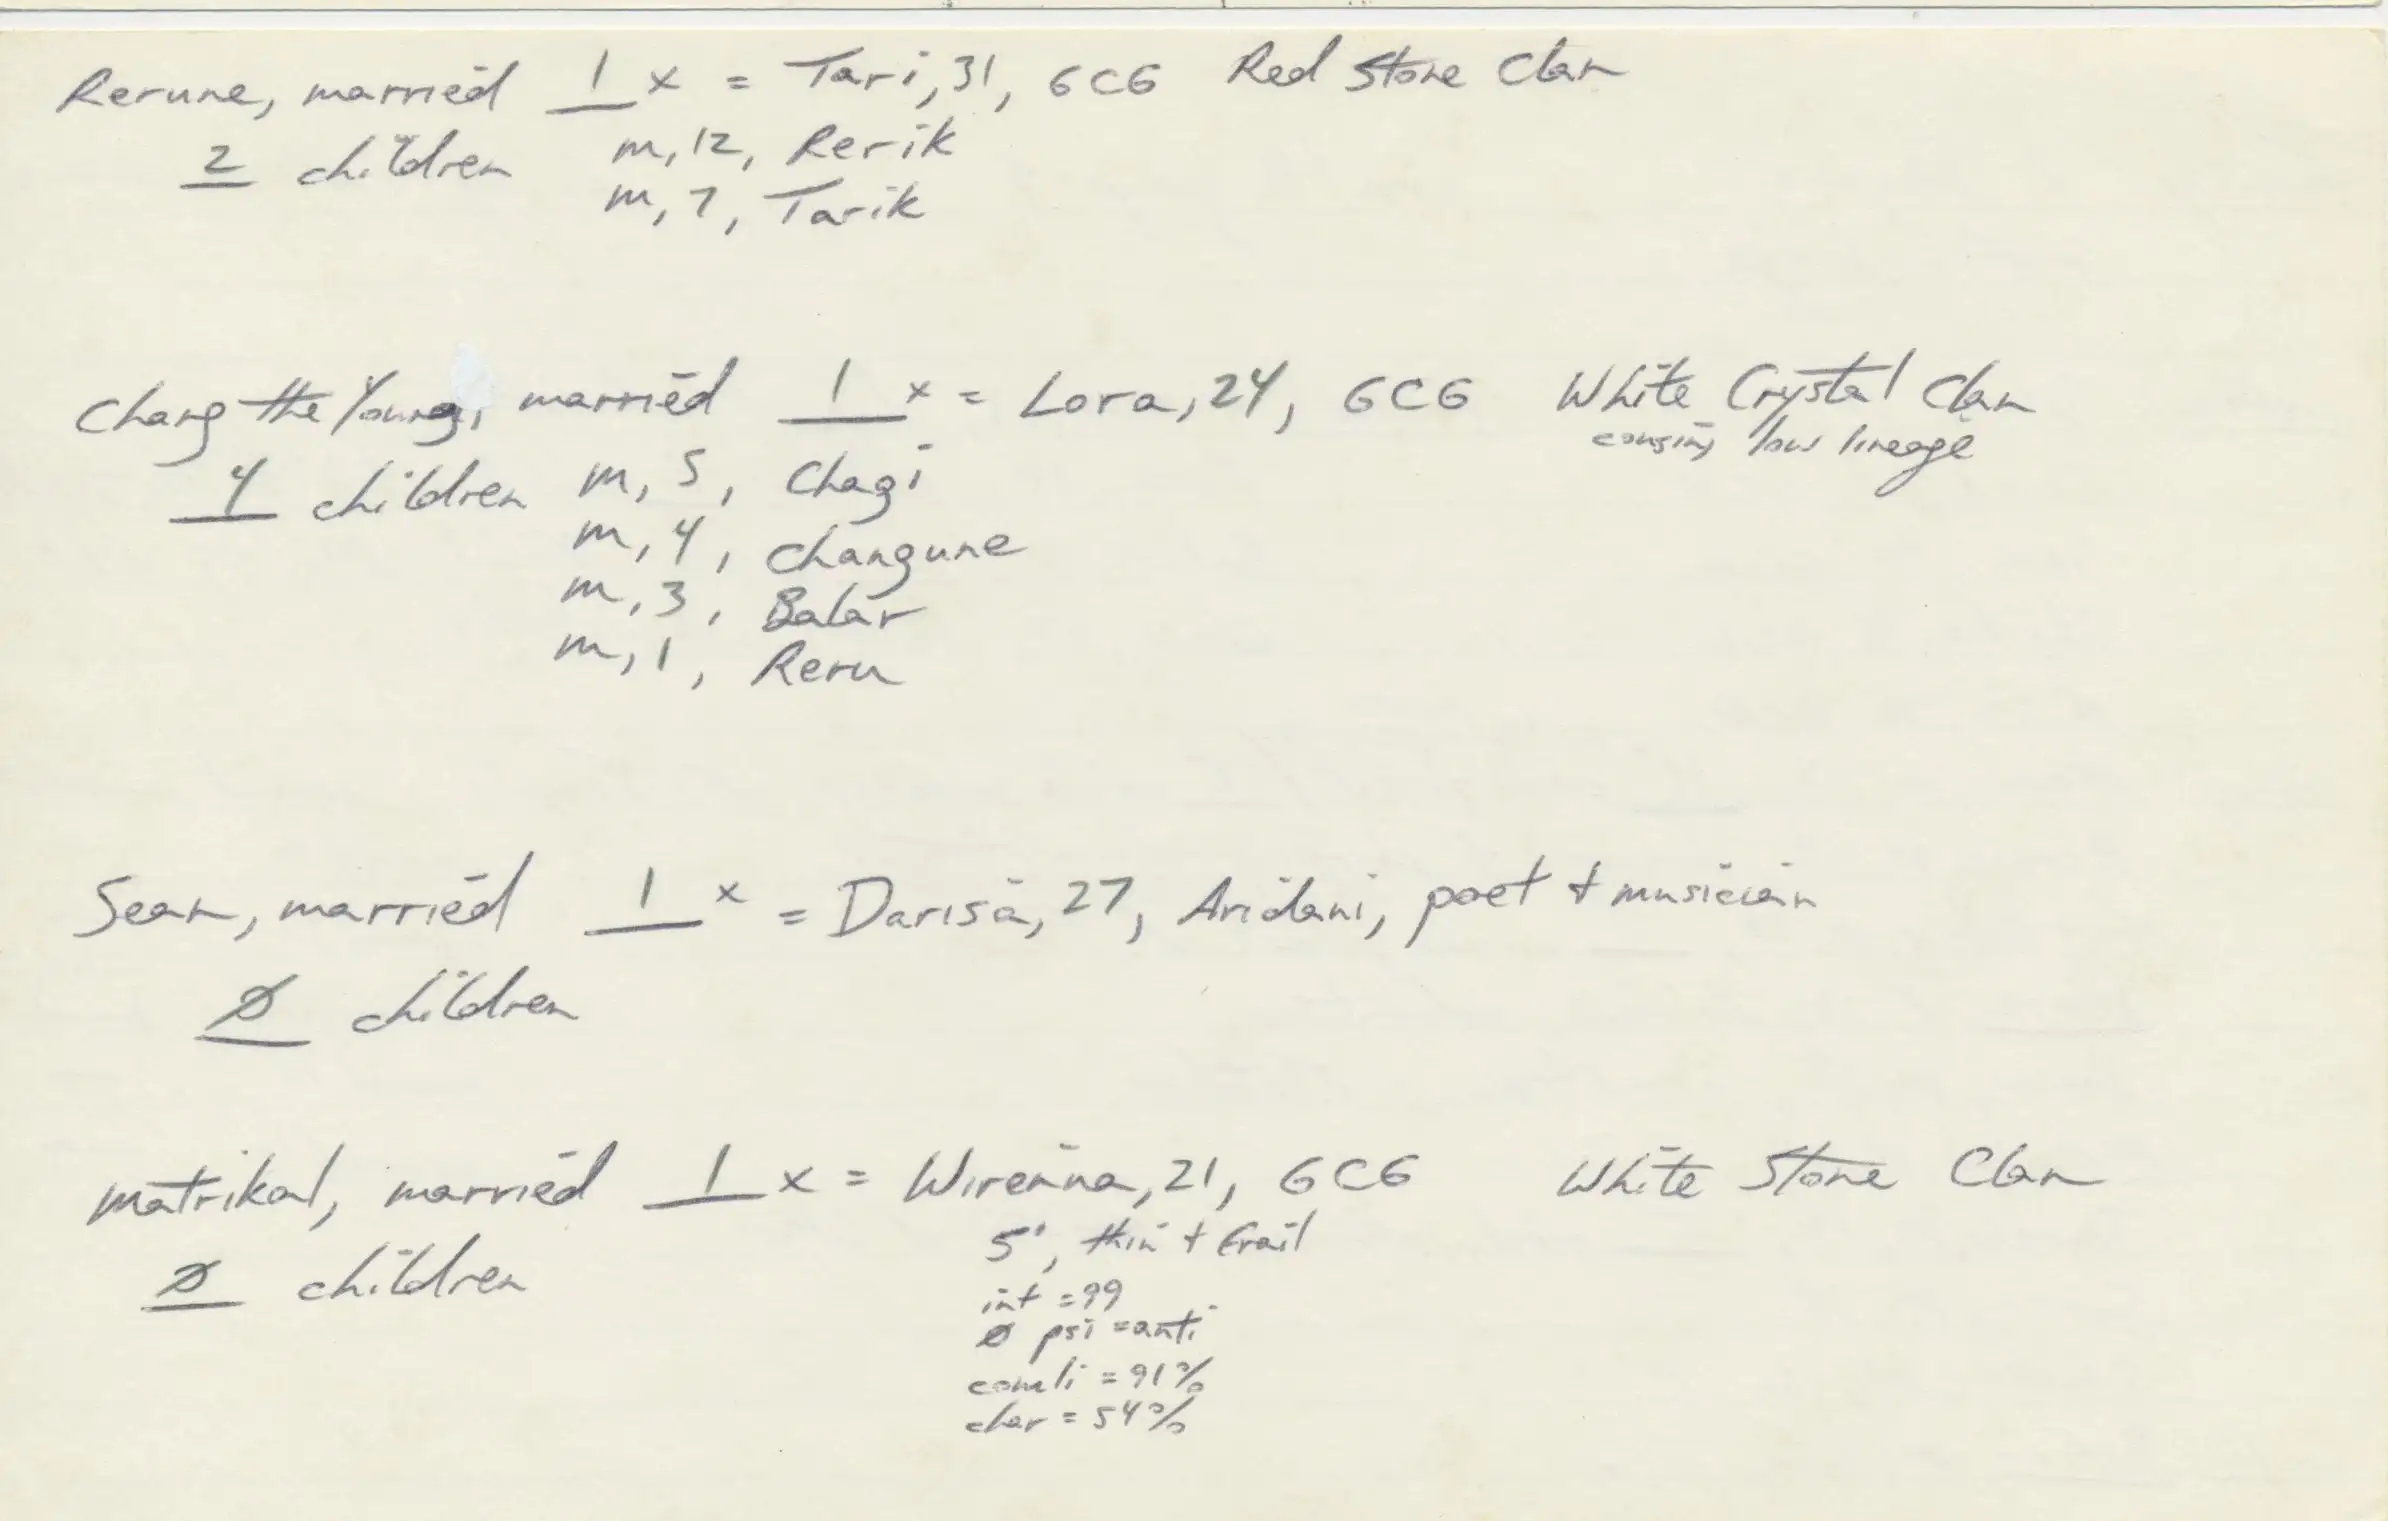 Rerune, married 1 x = Tari, 31, GCG Red Stone Clan
2 children m, 12, Rerik
m, 7, Tarik
Chang the Young, married 1 x = Lora, 24, GCG White Crystal Clan
cousins, low lineage
4 children m, 5, Chagi
m, 4, Changune
m, 3, Balar
m, 1, Reru
Sean, married 1 x = Darisa, 27, Aridani, poet + musician
Ø children
Matrikal, married 1 x = Wirenna, 21, GCG White Stone Clan
5', thin + frail
Ø children
int = 99
Ø psi = anti
comli = 91%
char = 54%